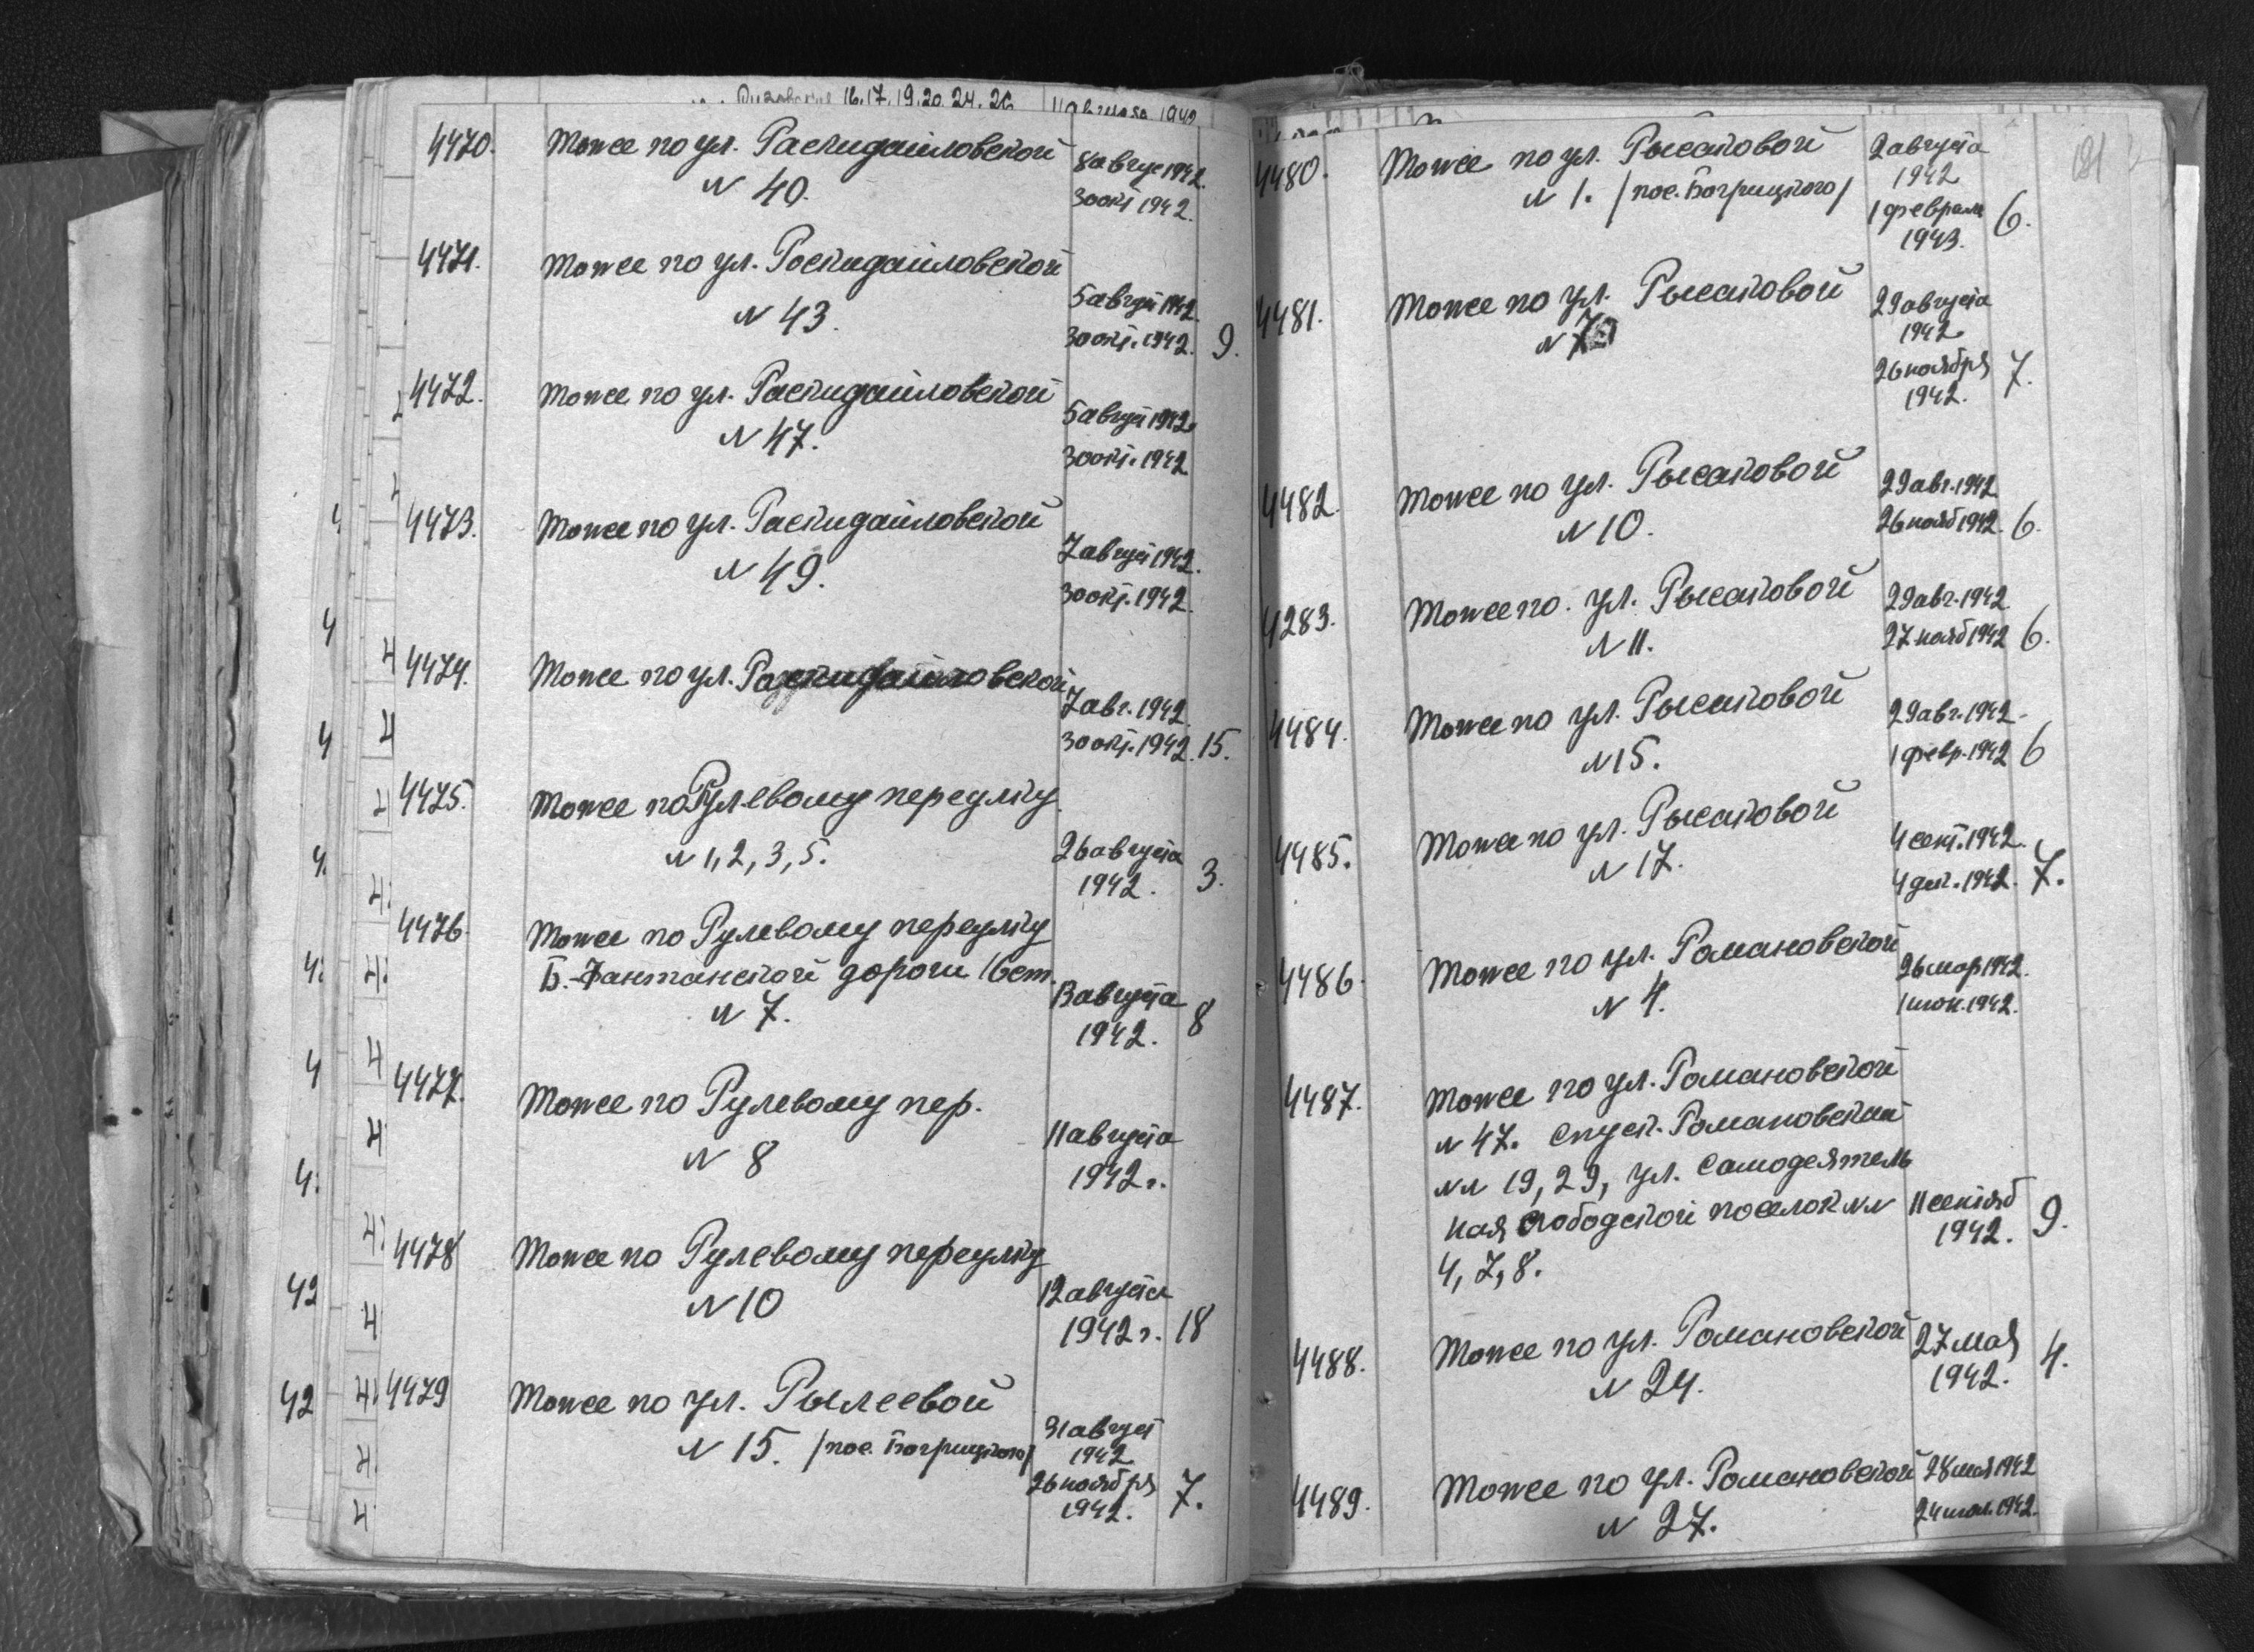 16.17.19.20.24.26 11 августа 1942
4470. Тоже по ул. Раскидайловской
8 авгус 1942.
N 40.
30 окт 1942.
4471. Тоже по ул. Раскидайловской
5 август 1942.
N 43.
30 окт. 1942. 9.
4472. Тоже по ул. Раскидайловской
5 август 1942.
N 47.
30 окт. 1942
4473. Тоже по ул. Раскидайловской
7 август 1942.
N 49.
30 окт. 1942.
4474. Тоже по ул. Раскидайловской
7 авг. 1942.
30 окт. 1942. 15.
4475. Тоже по Рулевому переулку
N 1, 2, 3, 5.
26 августа
1942. 3.
4476. Тоже по Рулевому переулку
Б.-Фантанской дороги 16 ст.
N 7.
13 августа
1942. 8
4477. Тоже по Рулевому пер.
N 8
11 августа
1942 г.
4478 Тоже по Рулевому переулку
N 10
12 августа
1942 г. 18
4479 Тоже по ул. Рылеевой
N 15. /пос. Багрицкого/
31 август
1942
26 ноября
1942. 7.
4480. Тоже по ул. Рысаковой
N 1. /пос. Багрицкого/
2 августа
1942
1 февраля
1943. 6.
4481. Тоже по ул. Рысаковой
N 7
29 августа
1942.
26 ноября
1942. 7.
4482. Тоже по ул. Рысаковой
29 авг. 1942
N 10.
26 нояб 1942. 6.
4283. Тоже по. ул. Рысаковой
29 авг. 1942
N 11.
27 нояб 1942 6.
4484. Тоже по ул. Рысаковой
29 авг. 1942.
N 15.
1 февр. 1942 6
4485. Тоже по ул. Рысаковой
4 сент. 1942.
N 17.
4 дек. 1942. 7.
4486. Тоже по ул. Романовской
26 мар 1942.
N 4.
1 июн. 1942.
4487. Тоже по ул. Романовской
N 47. Спуск. Романовский
NN 19, 29, ул. Самодеятель
ная Слободской поселок NN
4, 7, 8.
11 сентяб
1942. 9.
4488. Тоже по ул. Романовской
N 24.
27 мая
1942. 4.
4489. Тоже по ул. Романовской
28 мая 1942
N 27.
24 июл. 1942.